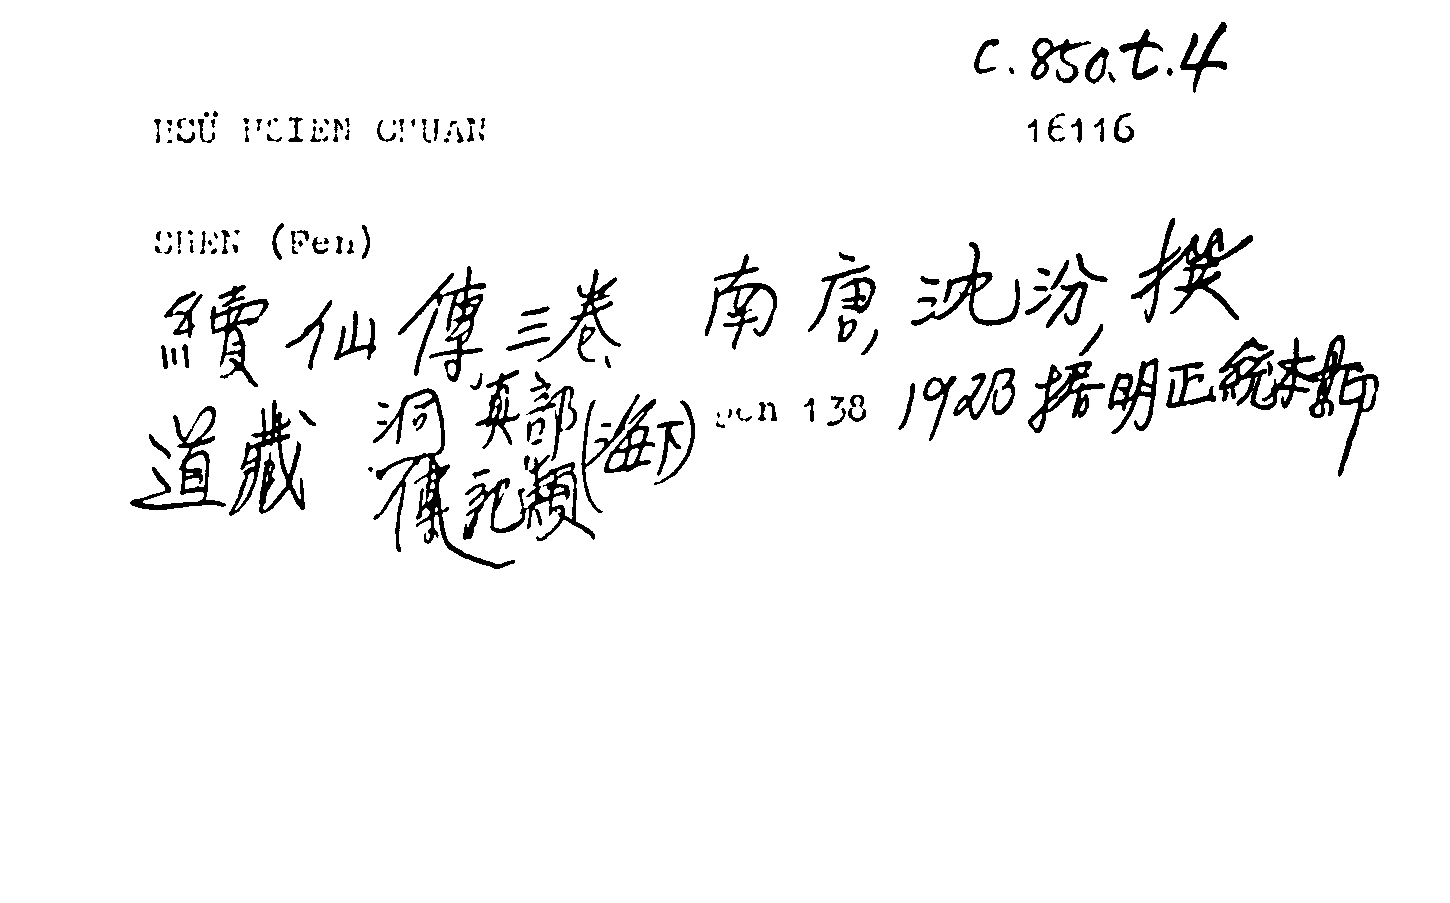 C.850.t.4
HSÜ HSIEN CHUAN 16116
SHEN (Fen)
續仙傳三卷 南唐,沈汾,撰
道藏 洞真部 傳記類 (海下) pen 138 1923 據明正統本影印